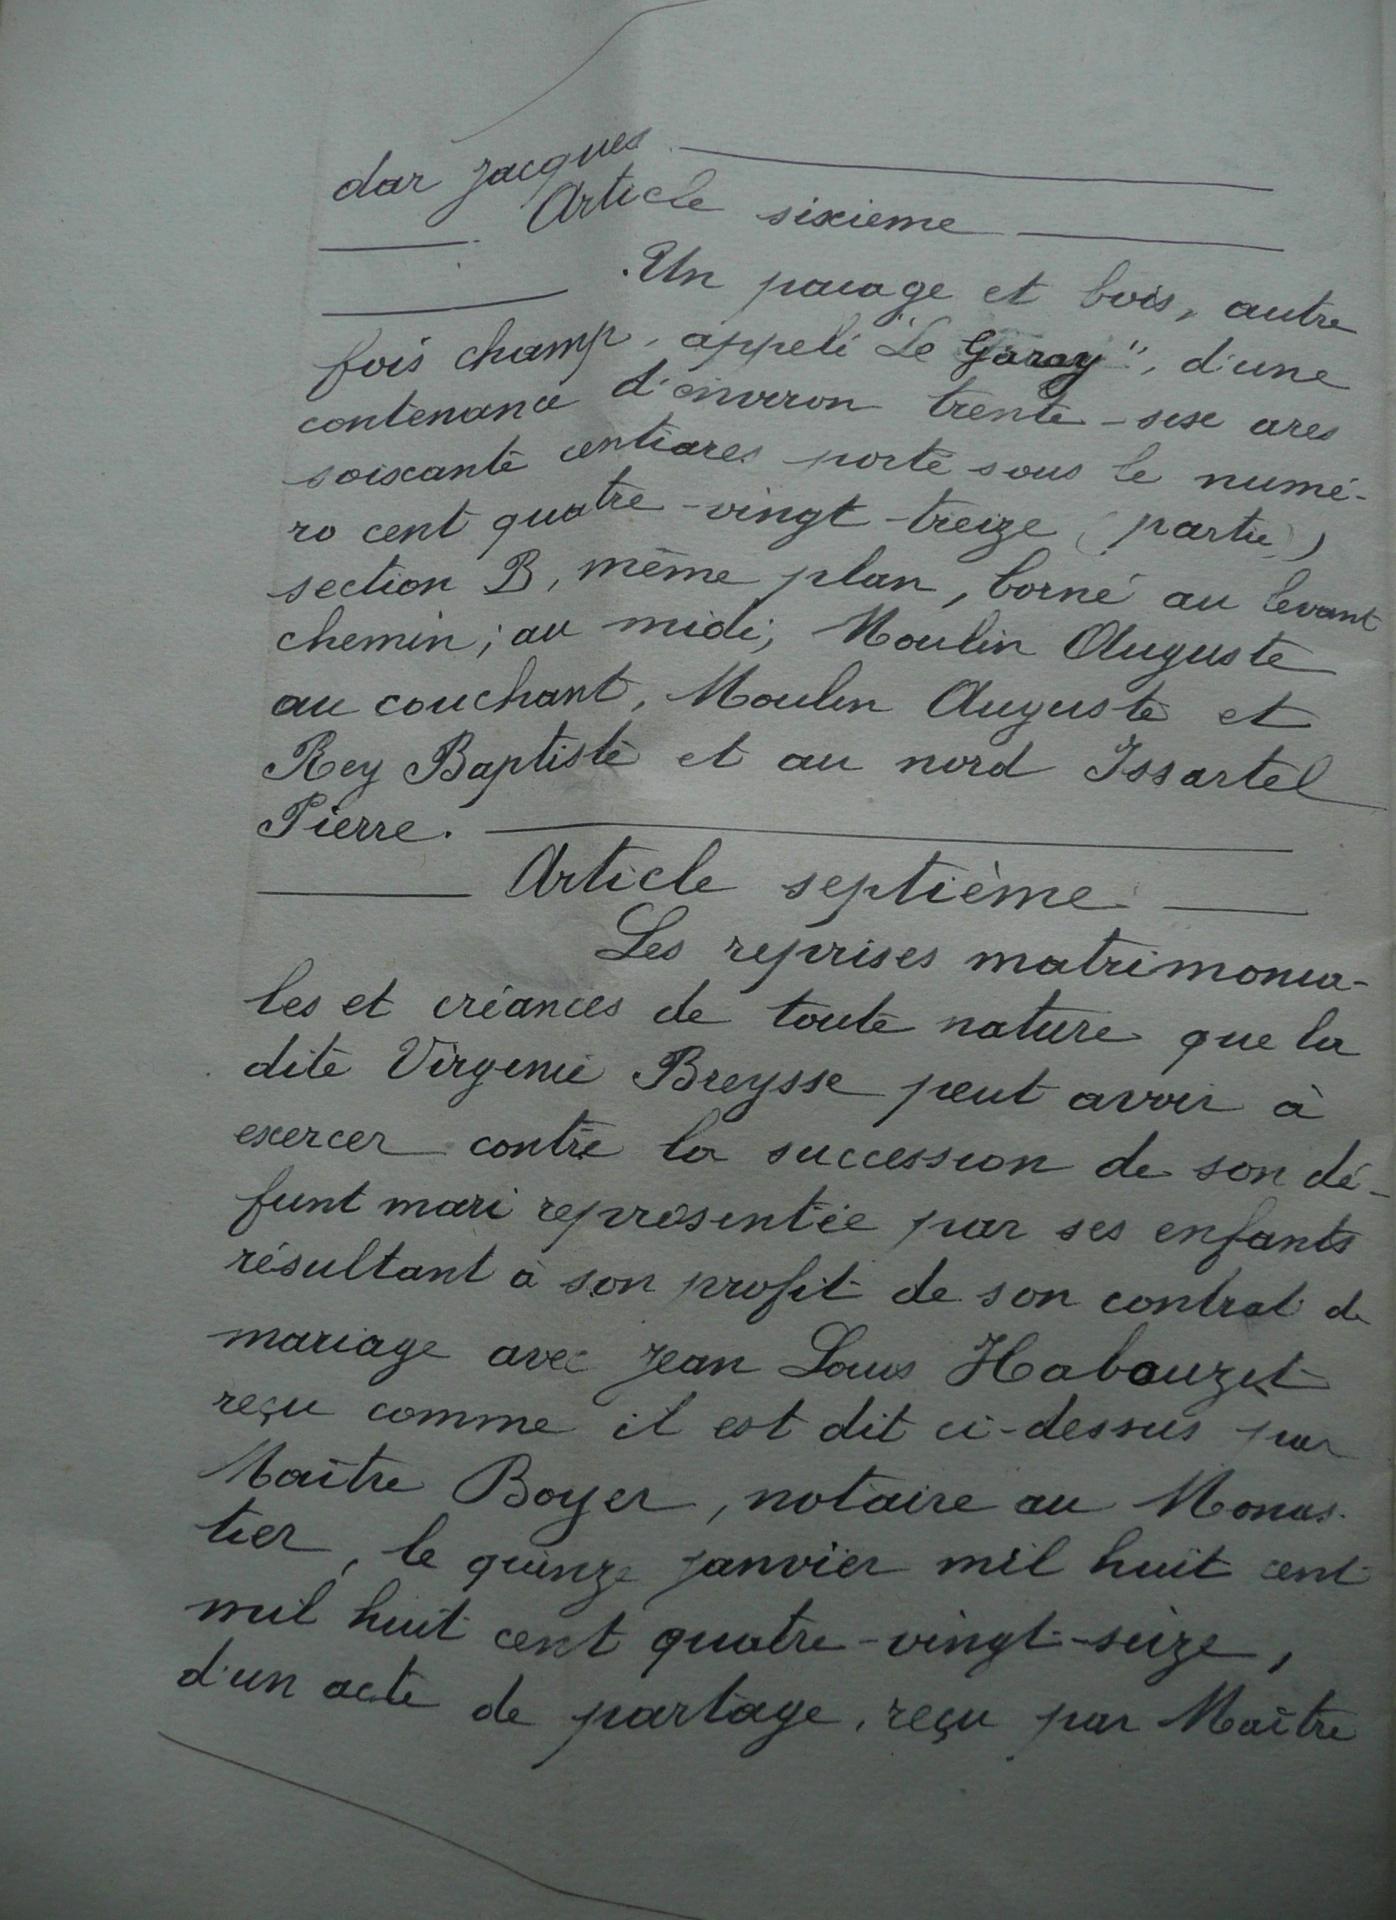 dar Jacques
Article sixieme
Un pacage et bois, autre
fois champ, appelé "Le Garay", d'une
contenance d'environ trente-six ares
soixante centiares porté sous le numé-
ro cent quatre-vingt-treize (partie)
section B, même plan, borné au levant
chemin; au midi; Moulin Auguste
au couchant, Moulin Auguste et
Rey Baptiste et au nord Issartel
Pierre.
Article septième
Les reprises matrimonia-
les et créances de toute nature que la
dite Virginie Breysse peut avoir à
exercer contre la succession de son dé-
funt mari représentée par ses enfants
résultant à son profit de son contrat de
mariage avec Jean Louis Habouzit
reçu comme il est dit ci-dessus par
Maître Boyer, notaire au Monas-
tier, le quinze janvier mil huit cent
mil huit cent quatre-vingt-seize,
d'un acte de partage, reçu par Maître